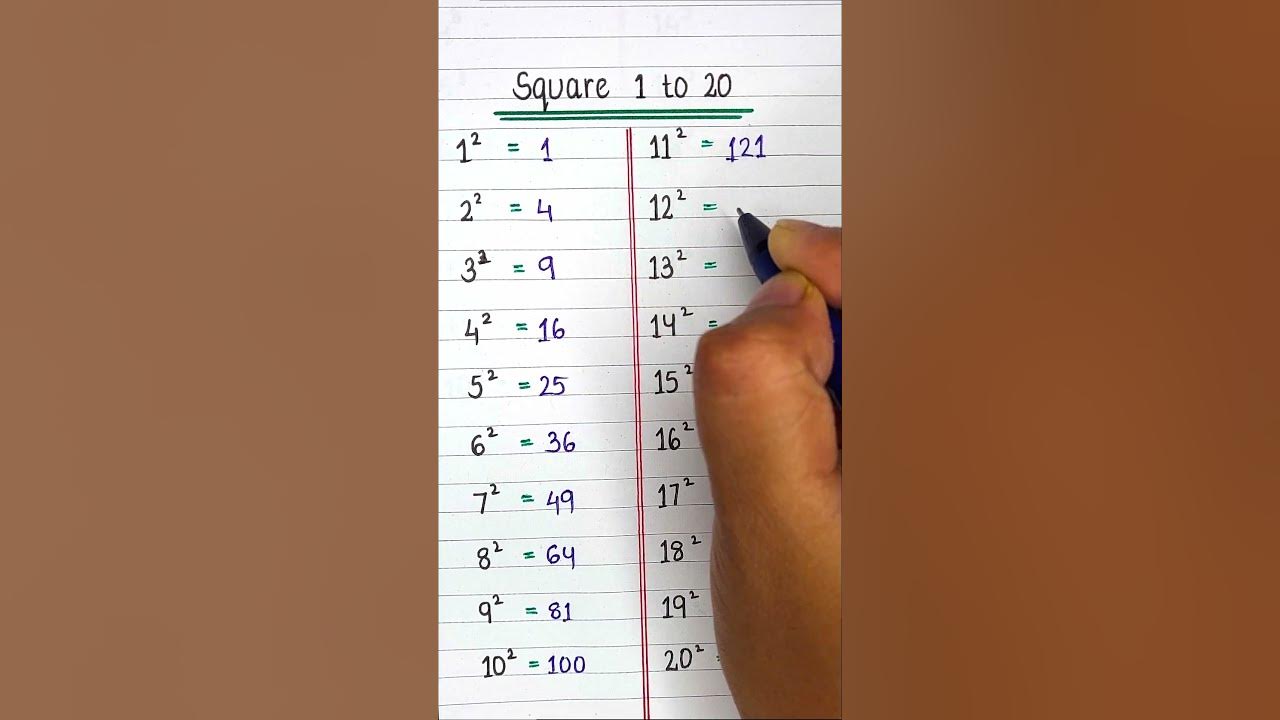 Square 1 to 20
1² = 1
2² = 4
3² = 9
4² = 16
5² = 25
6² = 36
7² = 49
8² = 64
9² = 81
10² = 100
11² = 121
12² =
13² =
14² =
15²
16²
17²
18²
19²
20²